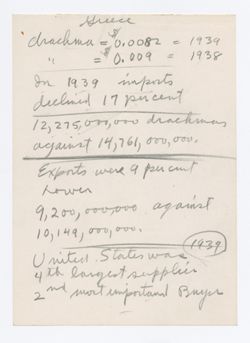 Greece
drachma = $0.0082 = 1939
" = $0.009 = 1938
In 1939 imports
declined 17 percent
12,275,000,000 drachmas
against 14,761,000,000.
Exports were 9 percent
Lower
9,200,000,000 against
10,149,000,000.
1939
United States was
4th largest supplier
2nd most important Buyer